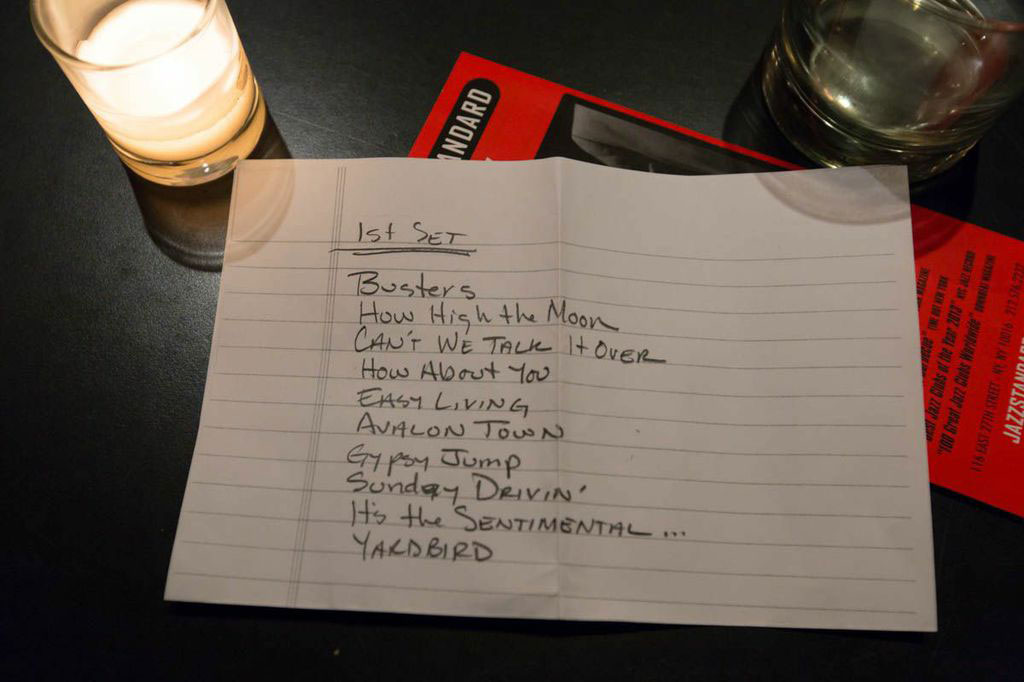 NDARD
1st SET
Busters
How High the Moon
CAN'T WE TALK It OVER
How About You
EASY LIVING
AVALON TOWN
Gypsy Jump
Sunday DRIVIN'
It's the SENTIMENTAL ...
YARDBIRD
Jazz Clubs of the Year 2013" NYC JAZZ RECORD
"100 Great Jazz Clubs Worldwide" DOWNBEAT MAGAZINE
116 EAST 27TH STREET NY, NY 10016 212.576.2232
JAZZSTANDARD